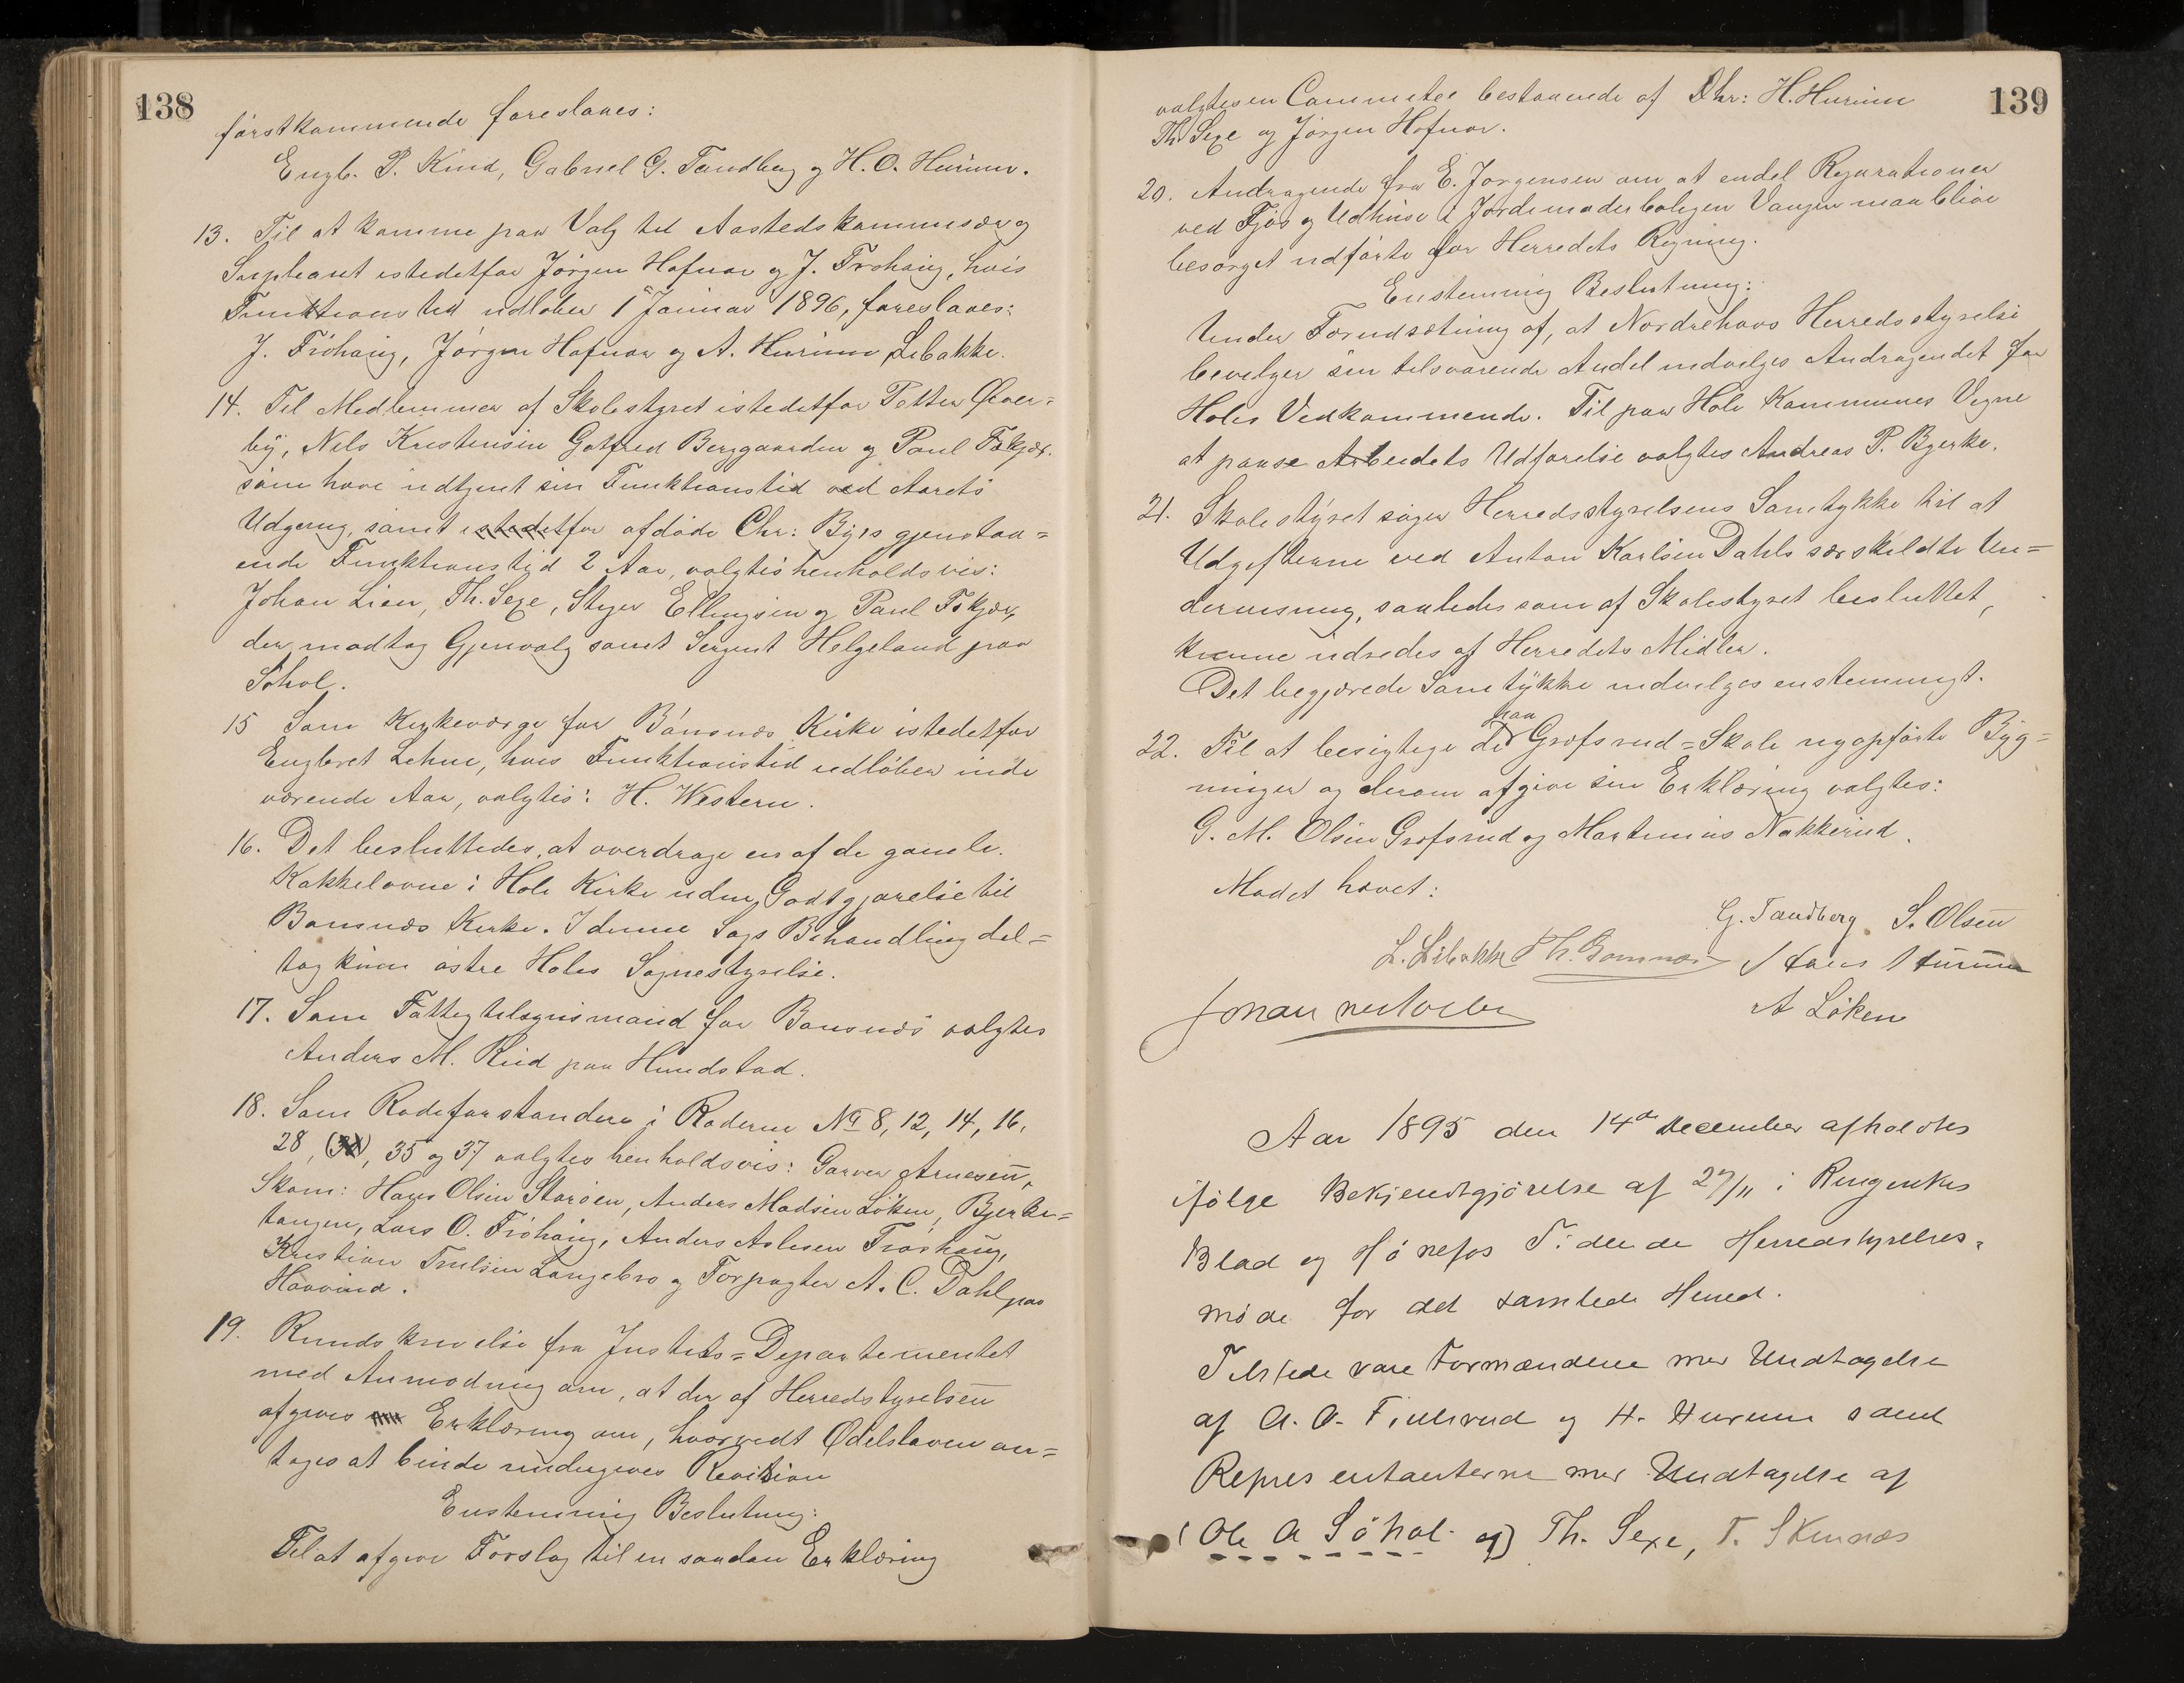 138
førstkommende foreslaaes:
Engb. P. Rud, Gabriel G. Tandberg og H. O. Hurum.
13. Til at komme paa Valg til Aastedskommisær og
Supleant istedetfor Jørgen Hafnor og J. Frøhaug, hvis
Funktionstid udløber 1ste Januar 1896, foreslaaes:
J. Frøhaug, Jørgen Hafnor og A. Hurum Libakke.
14. Til Medlemmer af Skolestyret istedetfor Petter Øver=
by, Nils Kristensen Gotfred Berggaarden og Paul Fekjær.
som have udtjent sin Funktionstid ved Aarets
Udgang, samt istedetfor afdøde Chr: Byes gjenstaa=
ende Funktionstid 2 Aar, valgtes henholdsvis:
Johan Lien, Th. Sexe, Styer Ellingsen og Paul Fekjær,
der modtog Gjenvalg samt Sergent Helgeland paa
Søhol.
15 Som Kirkeværge for Bønsnæs Kirke istedetfor
Engbret Lehne, hvis Funktionstid udløber inde
værende Aar, valgtes: H. Western.
16. Det besluttedes, at overdrage en af de gamle
Kakkelovne i Hole Kirke uden Godtgjørelse til
Bønsnæs Kirke. I denne Sags Behandling del=
tog kun østre Holes Sognestyrelse.
17. Som Fattigtilsynsmand for Bønsnæs valgtes
Anders M. Rud paa Hundstad.
18. Som Rodeforstandere i Roderne № 8, 12, 14, 16,
28, (34), 35 og 37 valgtes henholdsvis: Garver Arnesen,
Skom: Hans Olsen Storøen, Anders Madsen Løken, Bjerke=
tangen, Lars O. Frøhaug, Anders Aslesen Frøshaug,
Kristian Trulsen Langebro og Forpagter A. C. Dahl paa
Haavind.
19. Rundskrivelse fra Justits=Departementet
med Anmodning om, at der af Herredstyrelsen
afgives Erklæring om, hvorvidt Odelsloven an=
tages at burde undergives Revision
Enstemmig Beslutning:
Til at afgive Forslag til en saadan Erklæring
139
valgtes en Committee bestaaende af Dhr: H. Hurum
Th. Sexe og Jørgen Hafnor.
20. Andragende fra E. Jørgensen om at endel Reparationer
ved Fjøs og Udhuse i Jordemoderboligen Vangen maa blive
besørget udførte for Herredets Regning.
Enstemmig Beslutning:
Under Forudsætning af, at Norderhovs Herredsstyrelse
bevilger sin tilsvarende Andel indvilges Andragendet for
Holes Vedkommende. Til paa Hole Kommunes Vegne
at paase Arbeidets Udførelse valgtes Andreas P. Bjerke.
21. Skolestyret søger Herredsstyrelsens Samtykke til at
Udgifterne ved Anton Karlsen Dahls særskildte Un=
dervisning, saaledes som af Skolestyret besluttet,
kunne udredes af Herredets Midler.
Det begjærede Samtykke indvilges enstemmigt.
22. Til at besigtige de paa Grøfsrud=Skole nyopførte Byg=
ninger og derom afgive sin Erklæring valgtes:
G. M. Olsen Grøfsrud og Martinius Nakkerud.
Mødet hævet:
G. Tandberg S. Olsen
L. Libakke Th. Bønsnæs Hans Hurum
A Løken
Aar 1895 den 14de December afholdtes
ifølge Bekjendtgjørelse af 27/11 i Ringerikes
Blad og Hønefos Tidende Herredstyrelses=
møde for det samlede Herred.
Tilstede vare Formændene med Undtagelse
af A. O. Fjulsrud og H. Hurum samt
Repræsentanterne med Undtagelse af
(Ole A Søhol og) Th. Sexe, T. Skurnæs